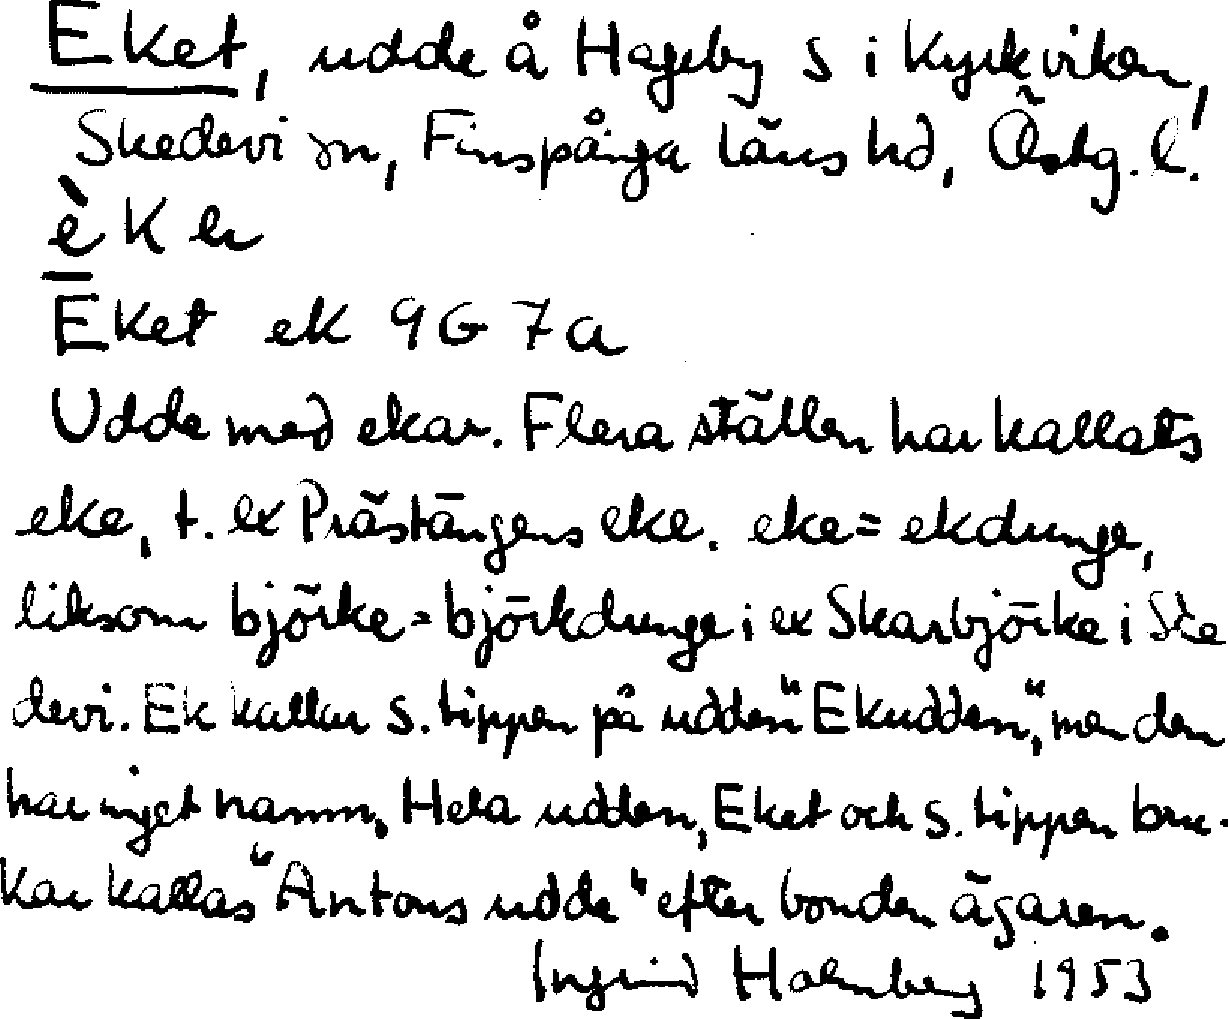 Eket, udde å Hageby S i Kyrkviken,
Skedevi sn, Finspånga läns hd, Östg. l.
è k e
Eket ek 9G 7a
Udde med ekar. Flera ställen har kallats
eke, t. ex Prästängens eke. eke = ekdunge,
liksom björke = björkdunge i ex Skarbjörke i Ske
devi. Ek kallar s. tippen på udden "Ekudden", men den
har inget namn. Hela udden, Eket och s. tippen bru-
kar kallas "Antons udde" efter bonden ägaren.
Ingrid Holmberg 1953